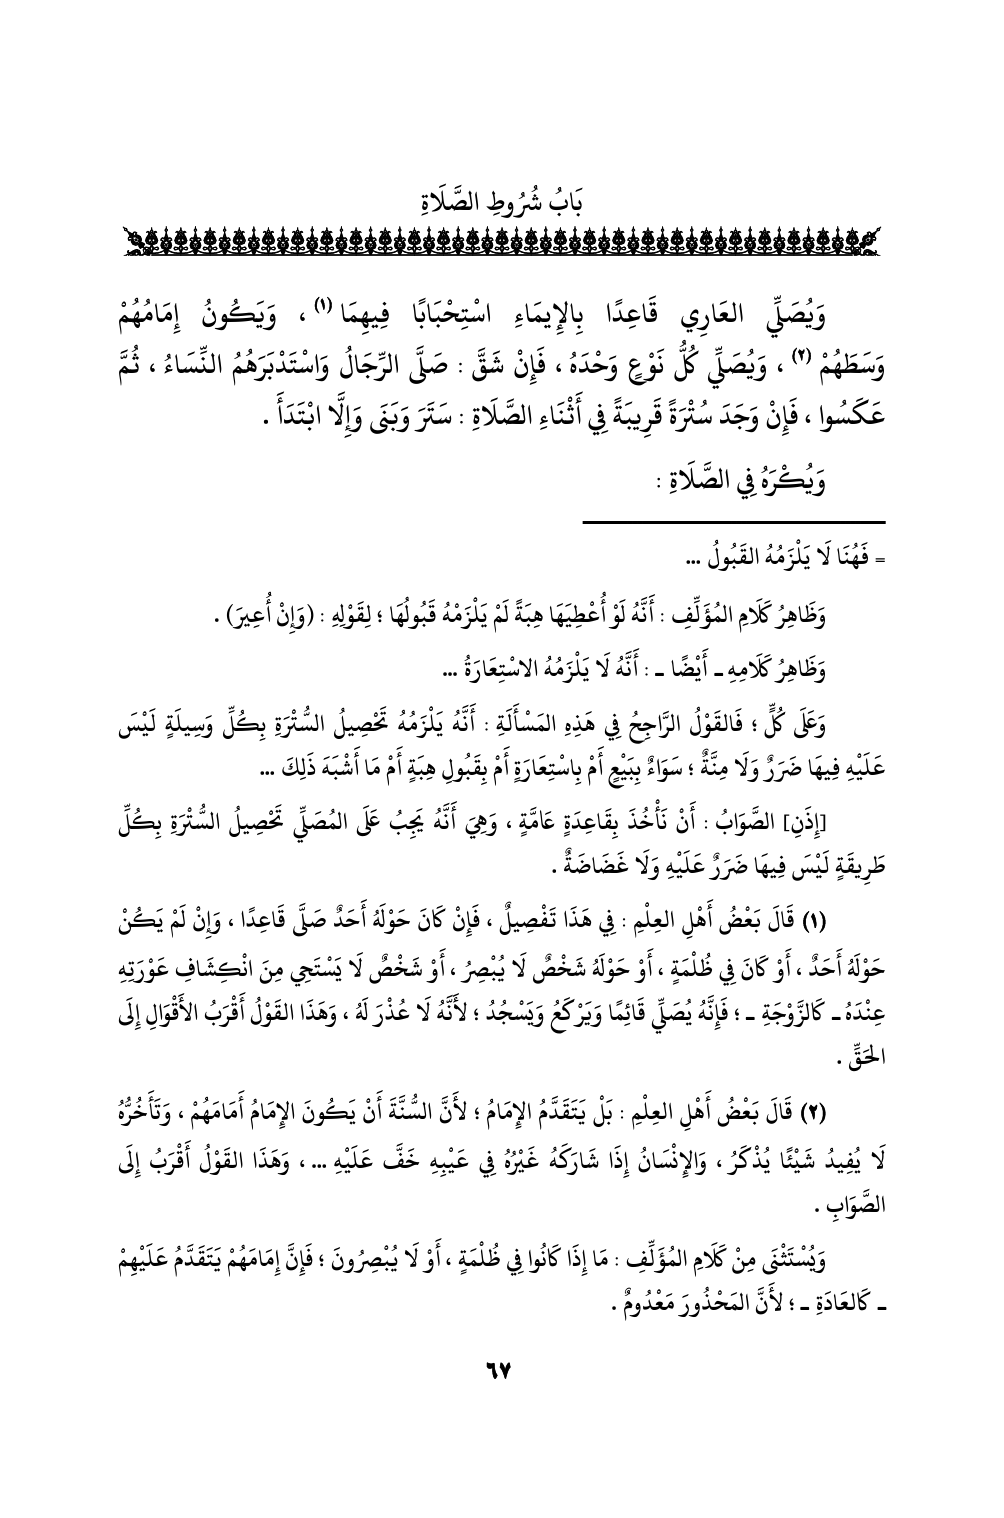 بَابُ شُرُوطِ الصَّلَاةِ
وَيُصَلِّي العَارِي قَاعِدًا بِالإِيمَاءِ اسْتِحْبَابًا فِيهِمَا (١) ، وَيَكُونُ إِمَامُهُمْ
وَسَطَهُمْ (٢) ، وَيُصَلِّي كُلُّ نَوْعٍ وَحْدَهُ ، فَإِنْ شَقَّ : صَلَّى الرِّجَالُ وَاسْتَدْبَرَهُمُ النِّسَاءُ ، ثُمَّ
عَكَسُوا ، فَإِنْ وَجَدَ سُتْرَةً قَرِيبَةً فِي أَثْنَاءِ الصَّلَاةِ : سَتَرَ وَبَنَى وَإِلَّا ابْتَدَأَ .
وَيُكْرَهُ فِي الصَّلَاةِ :
= فَهُنَا لَا يَلْزَمُهُ القَبُولُ ...
وَظَاهِرُ كَلَامِ المُؤَلِّفِ : أَنَّهُ لَوْ أُعْطِيَهَا هِبَةً لَمْ يَلْزَمْهُ قَبُولُهَا ؛ لِقَوْلِهِ : (وَإِنْ أُعِيرَ) .
وَظَاهِرُ كَلَامِهِ ـ أَيْضًا ـ : أَنَّهُ لَا يَلْزَمُهُ الاسْتِعَارَةُ ...
وَعَلَى كُلٍّ ؛ فَالقَوْلُ الرَّاجِحُ فِي هَذِهِ المَسْأَلَةِ : أَنَّهُ يَلْزَمُهُ تَحْصِيلُ السُّتْرَةِ بِكُلِّ وَسِيلَةٍ لَيْسَ
عَلَيْهِ فِيهَا ضَرَرٌ وَلَا مِنَّةٌ ؛ سَوَاءٌ بِبَيْعٍ أَمْ بِاسْتِعَارَةٍ أَمْ بِقَبُولِ هِبَةٍ أَمْ مَا أَشْبَهَ ذَلِكَ ...
[إِذَنِ] الصَّوَابُ : أَنْ نَأْخُذَ بِقَاعِدَةٍ عَامَّةٍ ، وَهِيَ أَنَّهُ يَجِبُ عَلَى المُصَلِّي تَحْصِيلُ السُّتْرَةِ بِكُلِّ
طَرِيقَةٍ لَيْسَ فِيهَا ضَرَرٌ عَلَيْهِ وَلَا غَضَاضَةٌ .
(١) قَالَ بَعْضُ أَهْلِ العِلْمِ : فِي هَذَا تَفْصِيلٌ ، فَإِنْ كَانَ حَوْلَهُ أَحَدٌ صَلَّى قَاعِدًا ، وَإِنْ لَمْ يَكُنْ
حَوْلَهُ أَحَدٌ ، أَوْ كَانَ فِي ظُلْمَةٍ ، أَوْ حَوْلَهُ شَخْصٌ لَا يُبْصِرُ ، أَوْ شَخْصٌ لَا يَسْتَحِي مِنَ انْكِشَافِ عَوْرَتِهِ
عِنْدَهُ ـ كَالزَّوْجَةِ ـ ؛ فَإِنَّهُ يُصَلِّي قَائِمًا وَيَرْكَعُ وَيَسْجُدُ ؛ لأَنَّهُ لَا عُذْرَ لَهُ ، وَهَذَا القَوْلُ أَقْرَبُ الأَقْوَالِ إِلَى
الحَقِّ .
(٢) قَالَ بَعْضُ أَهْلِ العِلْمِ : بَلْ يَتَقَدَّمُ الإِمَامُ ؛ لأَنَّ السُّنَّةَ أَنْ يَكُونَ الإِمَامُ أَمَامَهُمْ ، وَتَأَخُّرُهُ
لَا يُفِيدُ شَيْئًا يُذْكَرُ ، وَالإِنْسَانُ إِذَا شَارَكَهُ غَيْرُهُ فِي عَيْبِهِ خَفَّ عَلَيْهِ ... ، وَهَذَا القَوْلُ أَقْرَبُ إِلَى
الصَّوَابِ .
وَيُسْتَثْنَى مِنْ كَلَامِ المُؤَلِّفِ : مَا إِذَا كَانُوا فِي ظُلْمَةٍ ، أَوْ لَا يُبْصِرُونَ ؛ فَإِنَّ إِمَامَهُمْ يَتَقَدَّمُ عَلَيْهِمْ
ـ كَالعَادَةِ ـ ؛ لأَنَّ المَحْذُورَ مَعْدُومٌ .
٦٧